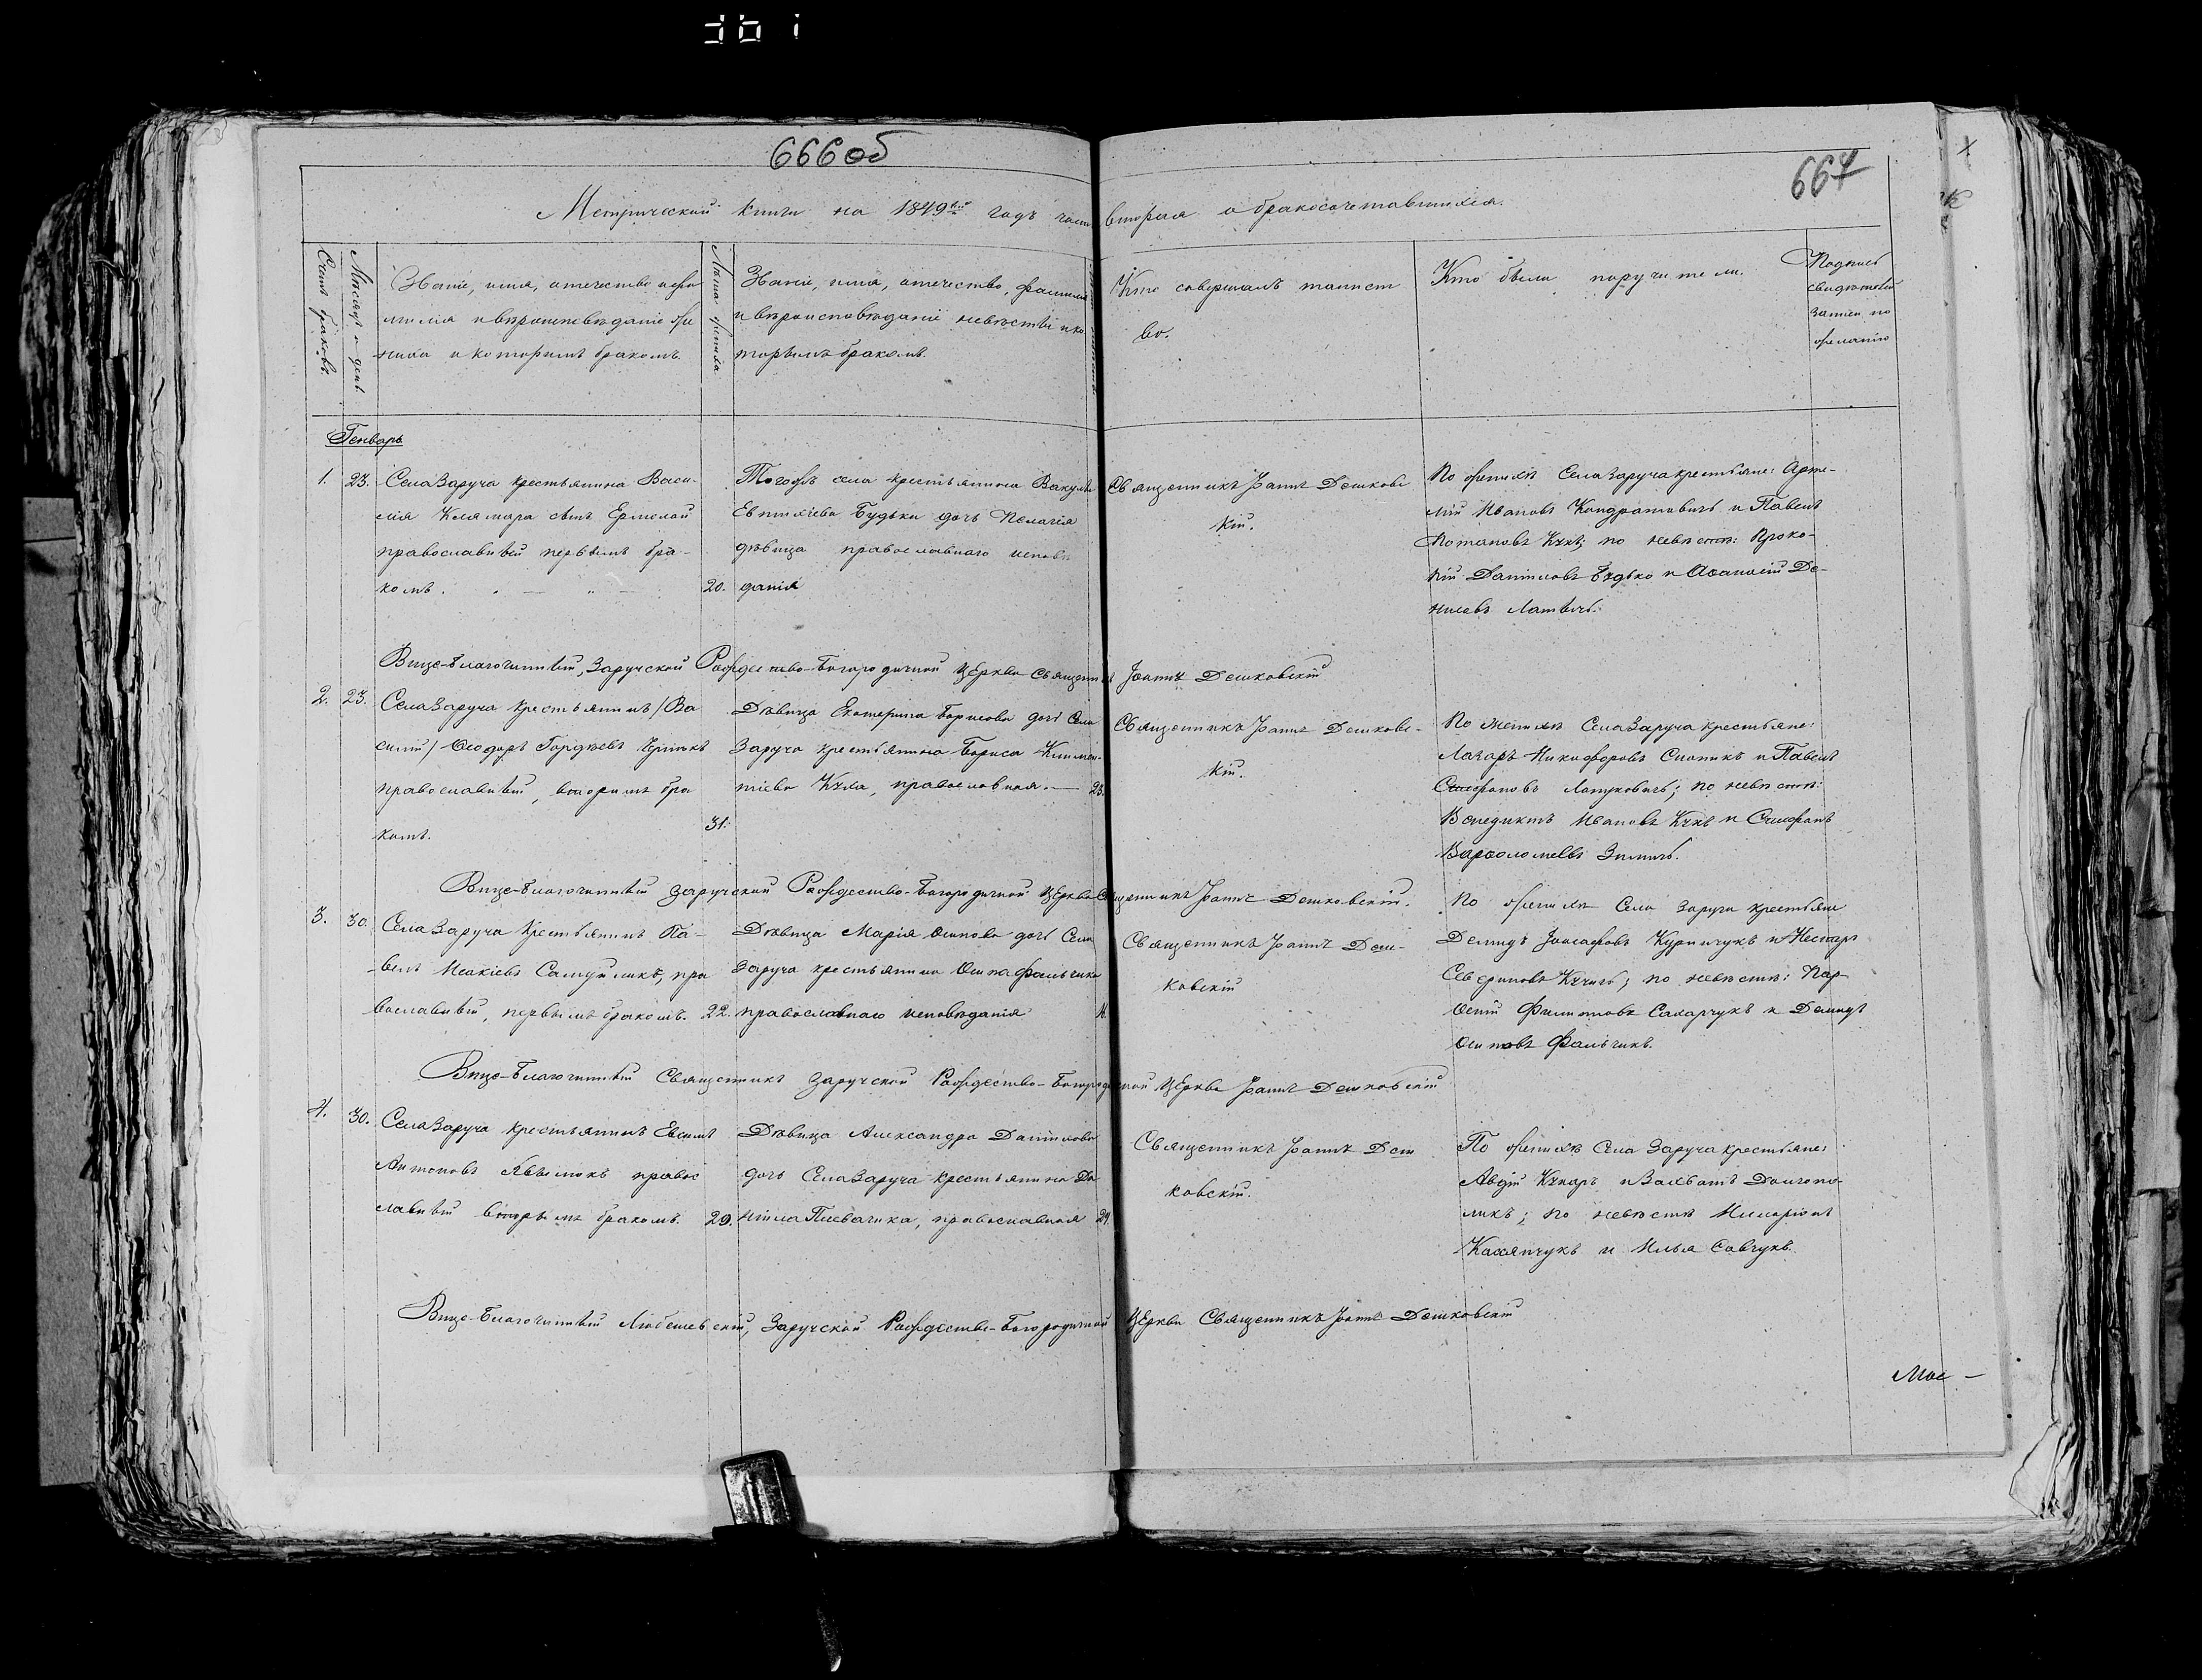 666 об
667
Метрической книги на 1849й годъ часть вторая о бракосочетавшихся.
Счетъ браковъ
Мѣсяцъ и день
Званіе, имя, отечество и фа
милія и вѣроисповѣданіе же
ниха и которымъ бракомъ.
Лѣта жениха
Званіе, имя, отечество, фамилія
и вѣроисповѣданіе невѣсты и ко
торымъ бракомъ.
Кто совершалъ таинст
во.
Кто были поручители.
Подпись
свидѣтелей
записи по
желанію
Генварь
1. 23. Села Заруча крестьянина Васи-
лія Клямара сынъ Ермолай
православный первымъ бра-
комъ. 20.
Тогожъ села крестьянина Вакулы
Евтихіева Будьки дочь Пелагія
дѣвица православнаго исповѣ
данія
Священникъ Іоаннъ Дешковс
кій.
По женихѣ Села Заруча крестьяне: Арте-
мій Ивановъ Кондратовичъ и Павелъ
Потаповъ Кукъ; по невѣстѣ: Проко-
пій Даніиловъ Будько и Аѳанасій Да-
ниловъ
Вице-благочинный, Заручской Рождество-Богородичной Церкви Священникъ Іоаннъ Дешковскій
2. 23. Села Заруча крестьянинъ /Ва
силій/ Ѳеодоръ Гордѣевъ
православный, вторымъ бра
комъ. 31.
Дѣвица Екатерина Борисова дочь Села
Заруча крестьянина Бориса Климен-
тіева Кука, православная. — 23.
Священникъ Іоаннъ Дешковс-
кій.
По женихѣ Села Заруча крестьяне:
Лазаръ Никифоровъ и Павелъ
Стефановъ; по невѣстѣ:
Венедиктъ Ивановъ Кукъ и Стефанъ
Варѳоломеевъ Зиничъ.
Вице-благочинный Заручской Рождество-Богородичной Церкви Священникъ Іоаннъ Дешковскій.
3. 30. Села Заруча крестьянинъ Па-
велъ Исакіевъ, пра
вославный, первымъ бракомъ. 22.
Дѣвица Марія Осипова дочь Села
Заруча крестьянина Осипа Фальчика
православнаго исповѣданія
Священникъ Іоаннъ Деш-
ковскій
По женихѣ Села Заруча крестьяне
Демидъ Іоасафовъ Куринчукъ и Несторъ
Севериновъ Кучинъ; по невѣстѣ: Пар-
ѳеній Филиповъ Сахарчукъ и Демидъ
Осиповъ Фальчикъ.
Вице-Благочинный Священникъ Заручской Рождество-Богородичной Церкви Іоаннъ Дешковскій
4. 30. Села Заруча крестьянинъ Евсимъ
Антоновъ правос
лавный вторымъ бракомъ. 29.
Дѣвица Александра Даніилова
дочь Села Заруча крестьянина Да
ніила Пивачика, православная 24.
Священникъ Іоаннъ Деш
ковскій.
По женихѣ Села Заруча крестьяне:
Авдій Кухаръ и Долгопо-
ликъ; по невѣстѣ Иларіонъ
Касянчукъ и Илья Савчукъ.
Вице-Благочинный Любешевскій, Заручской Рождество-Богородичной Церкви Священникъ Іоаннъ Дешковскій